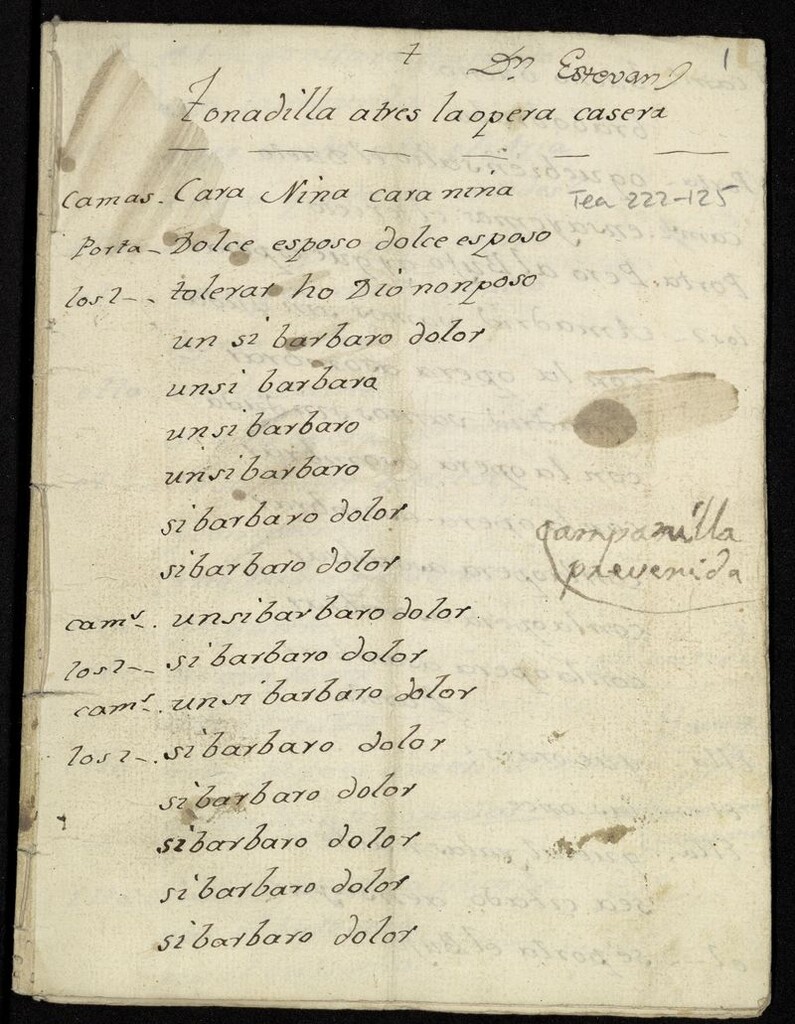 + Dn. Estevan 1
Tonadilla atres laopera casera
Camas. Cara Nina cara niña Tea 222-125
Porta - Dolce esposo dolce esposo
los 2 - . tolerar ho Dio nonposo
un si barbaro dolor
unsi barbara
unsi barbaro
unsi barbaro
si barbaro dolor
sibarbaro dolor
Campanilla
prevenida
cams. unsibarbaro dolor
los 2 - si barbaro dolor
cams. unsi barbaro dolor
los 2 - . sibarbaro dolor
sibarbaro dolor
sibarbaro dolor
sibarbaro dolor
sibarbaro dolor